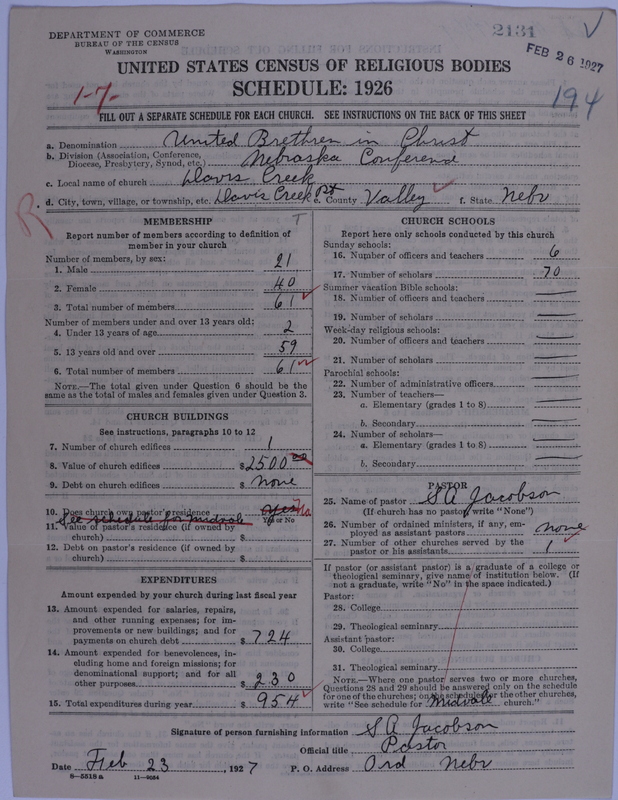 DEPARTMENT OF COMMERCE
BUREAU OF THE CENSUS
WASHINGTON
2131
FEB 26 1927
UNITED STATES CENSUS OF RELIGIOUS BODIES
SCHEDULE: 1926
1-7-
194
FILL OUT A SEPARATE SCHEDULE FOR EACH CHURCH. SEE INSTRUCTIONS ON THE BACK OF THIS SHEET
a. Denomination United Brethren in Christ
b. Division (Association, Conference, Diocese, Presbytery, Synod, etc.) Nebraska Conference
c. Local name of church Davis Creek
d. City, town, village, or township, etc. Davis Creek Pct e. County Valley f. State Nebr
R
MEMBERSHIP
T
Report number of members according to definition of
member in your church
Number of members, by sex:
1. Male 21
2. Female 40
3. Total number of members 61
Number of members under and over 13 years old:
4. Under 13 years of age 2
5. 13 years old and over 59
6. Total number of members 61
NOTE.—The total given under Question 6 should be the
same as the total of males and females given under Question 3.
CHURCH BUILDINGS
See instructions, paragraphs 10 to 12
7. Number of church edifices 1
8. Value of church edifices $2500
9. Debt on church edifices $ None
10. Does church own pastor's residence Yes No
Yes or No
See schedule for Midvale
11. Value of pastor's residence (if owned by
church) $
12. Debt on pastor's residence (if owned by
church) $
EXPENDITURES
Amount expended by your church during last fiscal year
13. Amount expended for salaries, repairs,
and other running expenses; for im-
provements or new buildings; and for
payments on church debt $ 724
14. Amount expended for benevolences, in-
cluding home and foreign missions; for
denominational support; and for all
other purposes $ 230
15. Total expenditures during year $ 954
CHURCH SCHOOLS
Report here only schools conducted by this church
Sunday schools:
16. Number of officers and teachers 6
17. Number of scholars 70
Summer vacation Bible schools:
18. Number of officers and teachers
19. Number of scholars
Week-day religious schools:
20. Number of officers and teachers
21. Number of scholars
Parochial schools:
22. Number of administrative officers
23. Number of teachers—
a. Elementary (grades 1 to 8)
b. Secondary
24. Number of scholars—
a. Elementary (grades 1 to 8)
b. Secondary
PASTOR
25. Name of pastor S A Jacobson
(If church has no pastor, write "None")
26. Number of ordained ministers, if any, em-
ployed as assistant pastors none
27. Number of other churches served by the
pastor or his assistants 1
If pastor (or assistant pastor) is a graduate of a college or
theological seminary, give name of institution below. (If
not a graduate, write "No" in the space indicated.)
Pastor:
28. College
29. Theological seminary
Assistant pastor:
30. College
31. Theological seminary
NOTE.—Where one pastor serves two or more churches,
Questions 28 and 29 should be answered only on the schedule
for one of the churches; on the schedules for the other churches,
write "See schedule for Midvale church."
Signature of person furnishing information S A Jacobson
Official title Pastor
Date Feb 23, 1927 P. O. Address Ord Nebr
8—5518 a 11—9054